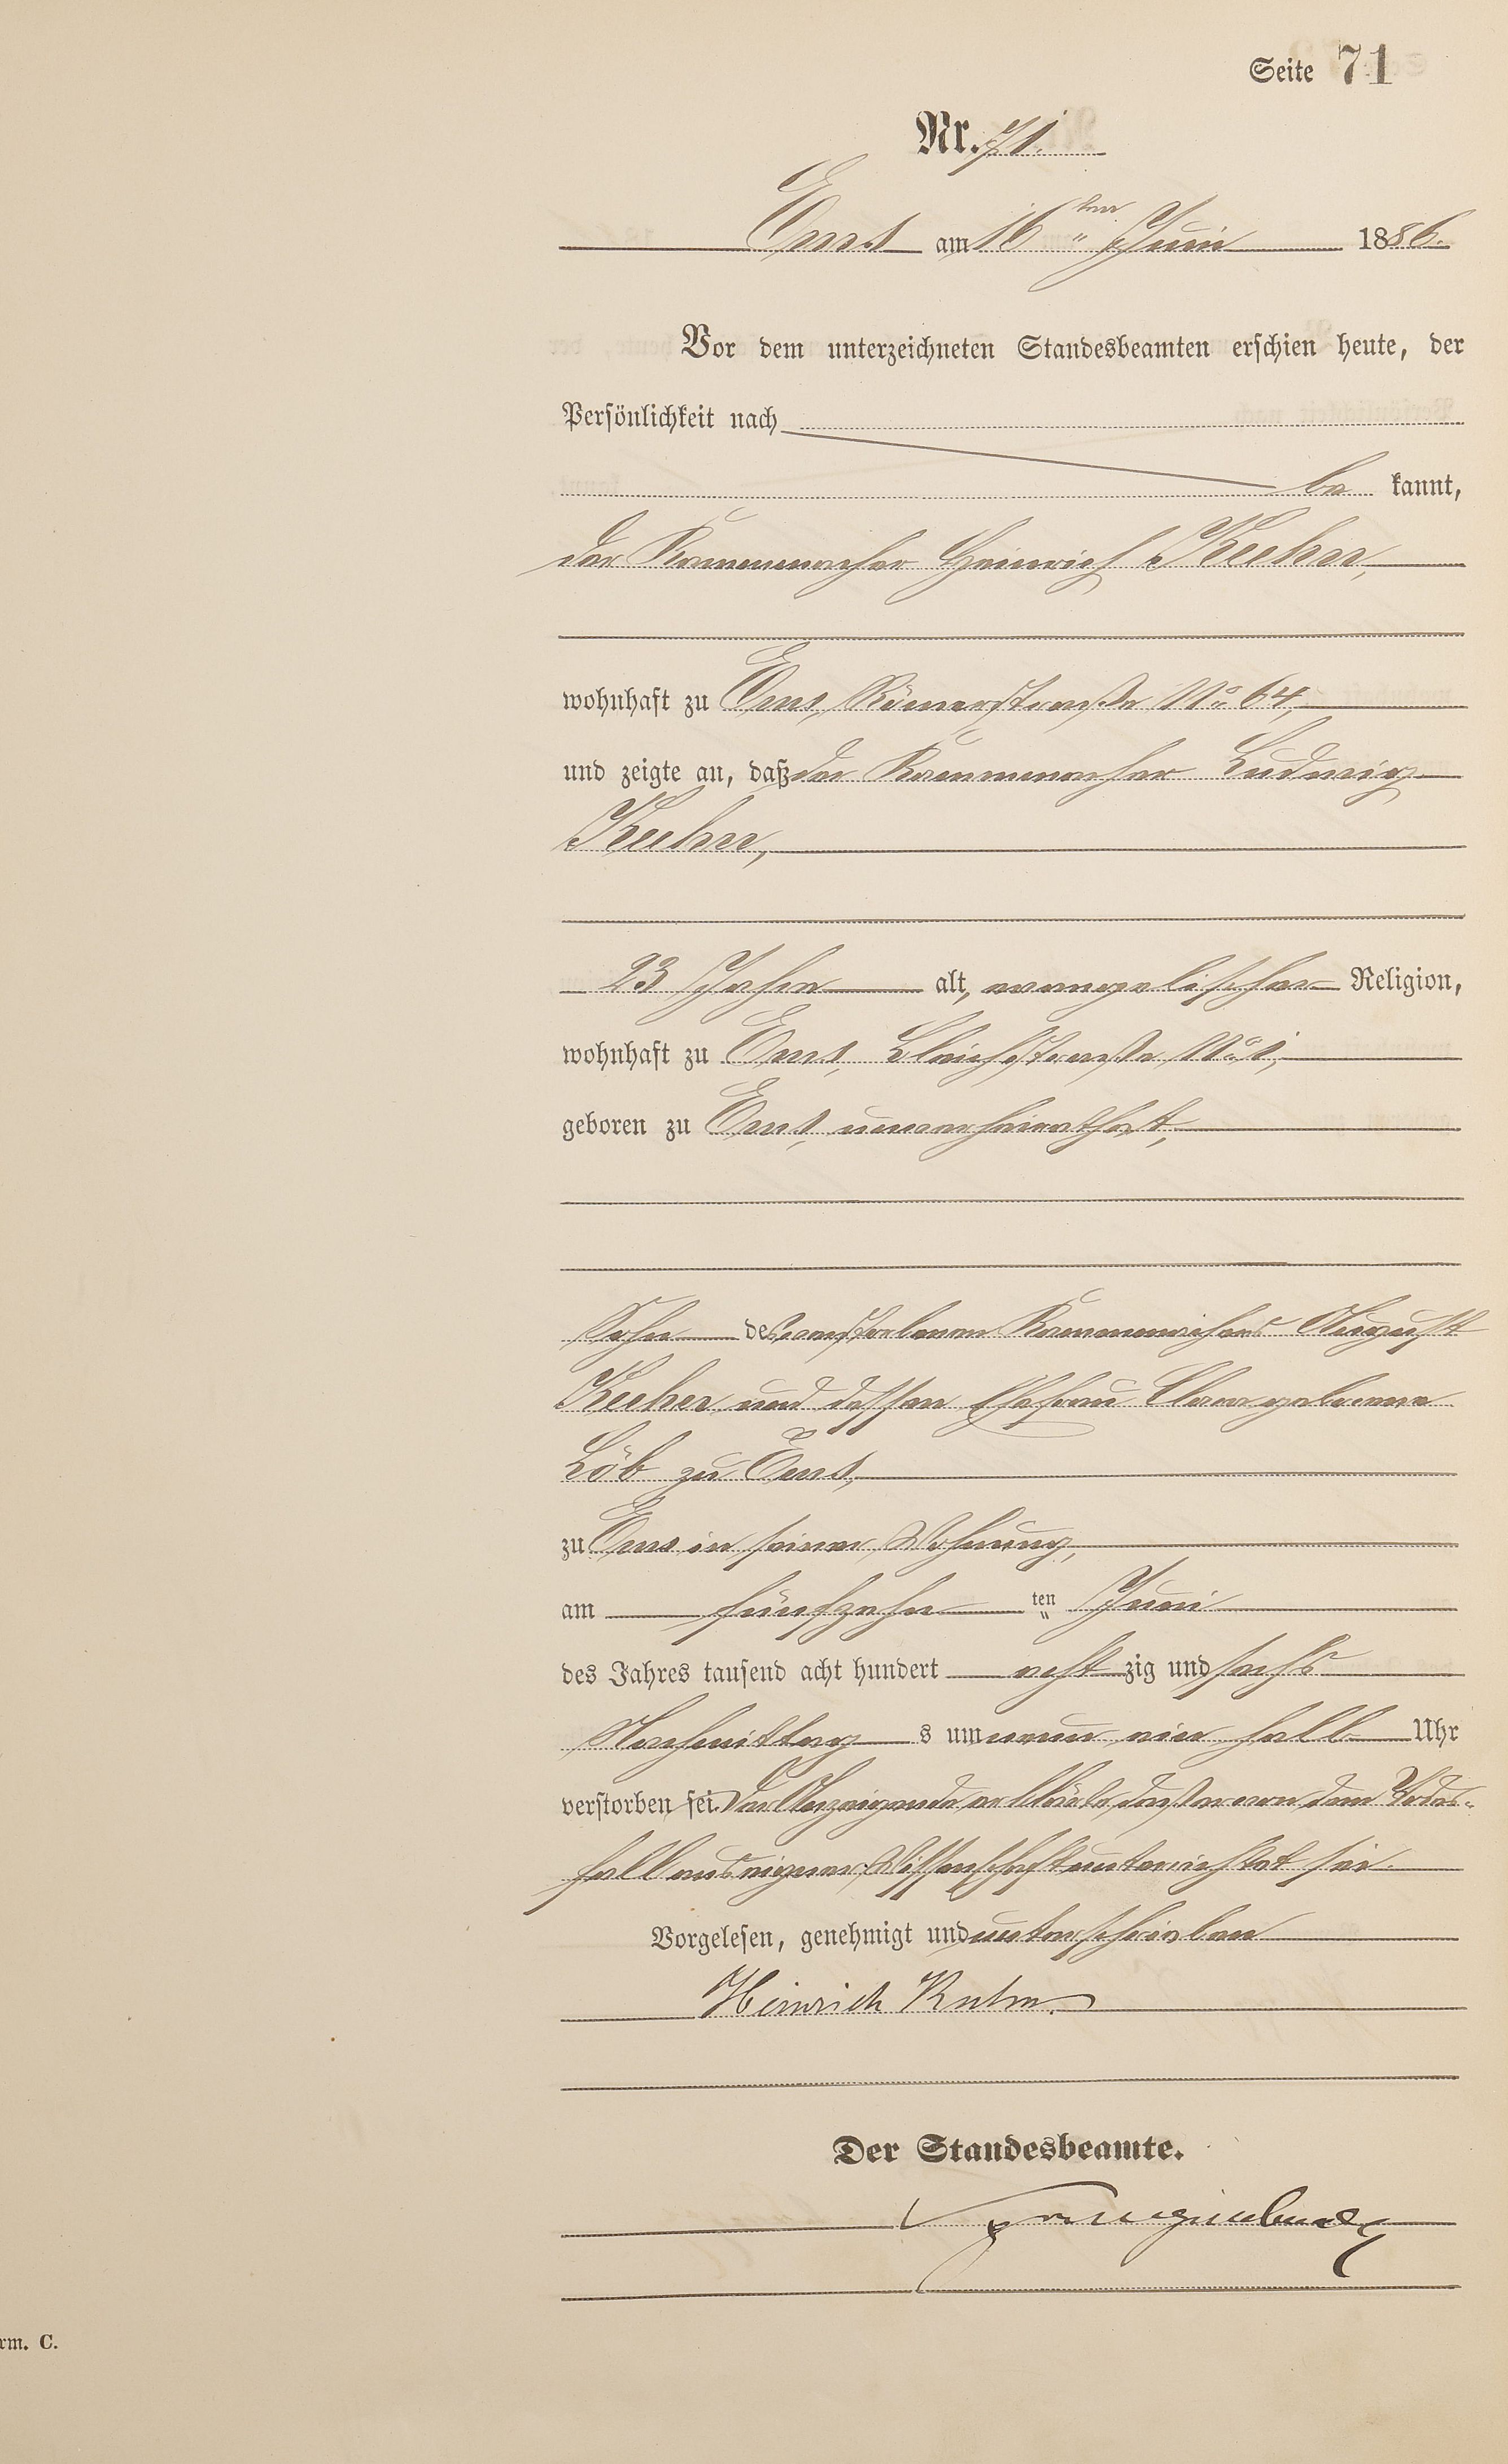 Seite 71
Nr. 71.
Ems am 16ten Juni 1886.
Vor dem unterzeichneten Standesbeamten erschien heute, der
Persönlichkeit nach
be kannt,
der Kammmacher Heinrich Kuhn,
wohnhaft zu Ems, Römerstraße No 64,
und zeigte an, daß der Kammmacher Ludwig
Kuhn,
23 Jahre alt, evangelischer Religion,
wohnhaft zu Ems, Bleichstraße No 1,
geboren zu Ems, unverheirathet,
Sohn des verstorbenen Kammmachers August
Kuhn und dessen Ehefrau geborene
Löb zu Ems,
zu Ems in seiner Wohnung,
am fünfzehn ten Juni
des Jahres tausend acht hundert acht zig und sechs
Nachmittag s um neun ein halb Uhr
verstorben sei. Der Anzeigende erklärte, daß er von dem Todes-
fall aus eigener Wissenschaft unterrichtet sei.
Vorgelesen, genehmigt und unterschrieben
Heinrich Kuhn.
Der Standesbeamte.
rm. C.